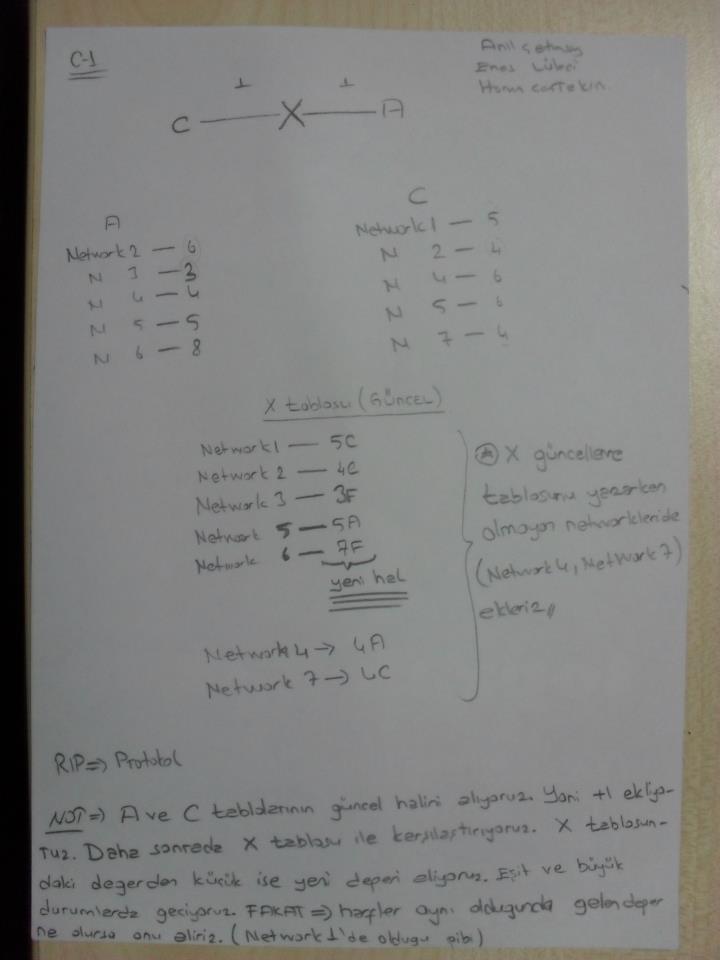 C-1
Anıl
Enes
1 1
C X A
A
Network 2 — 6
N 3 — 3
N 4 — 4
N 5 — 5
N 6 — 8
C
Network 1 — 5
N 2 — 4
N 4 — 6
N 5 — 6
N 7 — 4
X tablosu (GÜNCEL)
Network 1 — 5C
Network 2 — 4C
Network 3 — 3F
Network 5 — 5A
Network 6 — 7F
yeni hal
Network 4 → 4A
Network 7 → 4C
* X güncelleme
tablosunu yazarken
olmayan networkleride
(Network 4, Network 7)
ekleriz
RIP => Protokol
NOT => A ve C tablolarının güncel halini alıyoruz. Yani +1 ekliyo-
ruz. Daha sonrada X tablosu ile karşılaştırıyoruz. X tablosun-
daki değerden küçük ise yeni değeri alıyoruz. Eşit ve büyük
durumlarda geçiyoruz. FAKAT => harfler aynı olduğunda gelen değer
ne olursa onu alırız. (Network 1'de olduğu gibi)